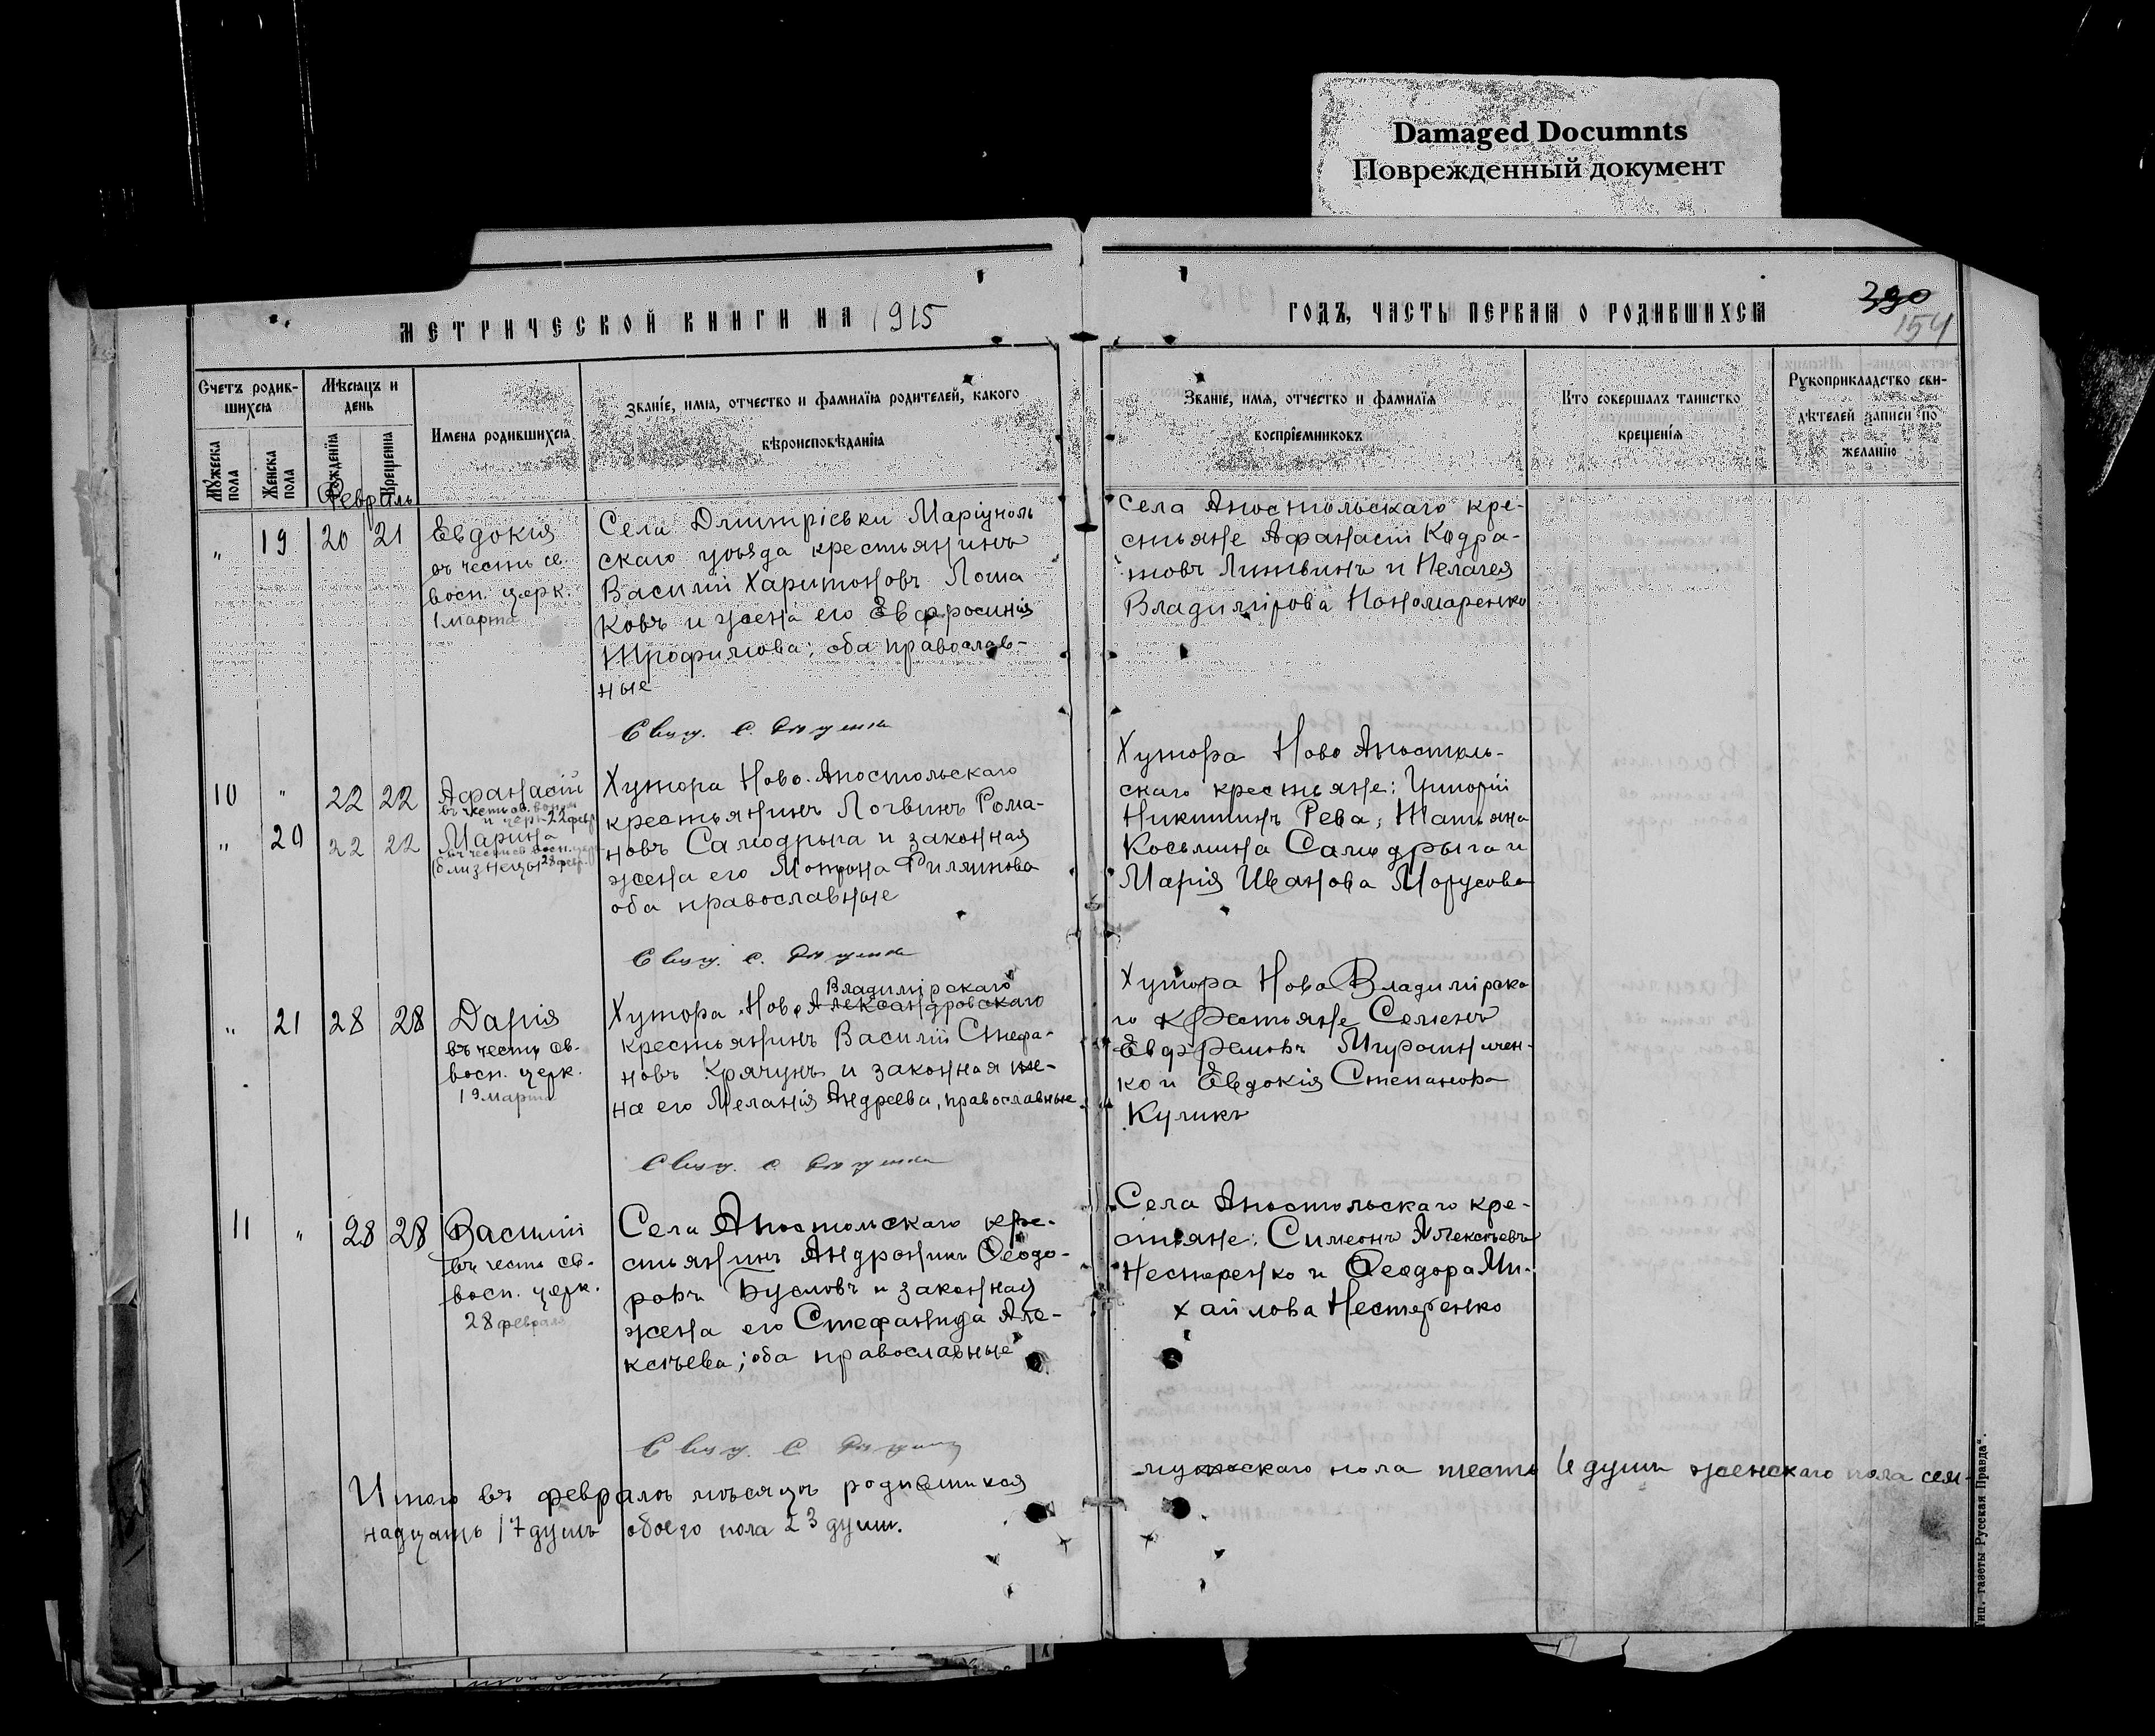 Damaged Documnts
Поврежденный документ
МЕТРИЧЕСКОЙ КНИГИ НА 1915
ГОДЪ, ЧАСТЬ ПЕРВАЯ О РОДИВШИХСЯ
390
154
Счетъ родив-
шихся
Мужеска пола
Женска пола
Мѣсяцъ и
день
Рожденія
Крещенія
Имена родившихся
Званіе, имя, отчество и фамилія родителей, какого
вѣроисповѣданія
Званіе, имя, отчество и фамилія
воспріемниковъ
Кто совершалъ таинство
крещенія
Рукоприкладство сви-
дѣтелей записи по
желанію
Февраль
" 19 20 21
Евдокія
въ честь св.
восп. церк.
1 марта
Села Дмитріевки Маріуполь
скаго уѣзда крестьянинъ
Василій Харитоновъ Лоша
ковъ и жена его Евфросинія
Трофимова; оба православ-
ные
Села Апостольскаго кре-
стьяне Афанасій Кодра-
товъ Литвинъ и Пелагея
Владимірова Пономаренко
10 " 22 22
Афанасій
въ честь св. восп.
и церк 22 февр
" 20 22 22
Марина
въ честь св восп. церк
(близнецы 28 февр.)
Хутора Ново-Апостольскаго
крестьянинъ Логвинъ Рома-
новъ Самодрыга и законная
жена его Матрона Филяимова
оба православные
Хутора Ново Апостоль-
скаго крестьяне: Григорій
Никитинъ Рева; Татьяна
Косьмина Самодрыга и
Марія Иванова Морусова
" 21 28 28
Дарія
въ честь св.
восп. церк.
19 марта
Владимірскаго
Хутора Ново Александровскаго
крестьянинъ Василій Стефа-
новъ Крячунъ и законная же-
на его Меланія Андреева, православные
Хутора Ново Владимірска
го крестьяне Семенъ
Евфремовъ Мирошничен-
ко и Евдокія Степанова
Куликъ
11 " 28 28
Василій
въ честь св.
восп. церк.
28 февраля
Села Апостольскаго кре-
стьянинъ Андроникъ Ѳеодо-
ровъ Бусловъ и законная
жена его Стефанида Але-
ксѣева; оба православные
Села Апостольскаго кре-
стьяне: Симеонъ Алексѣевъ
Нестеренко и Ѳеодора Ми-
хайлова Нестеренко
Итого въ февралѣ мѣсяцѣ родившихся
мужескаго пола шесть 6 душъ женскаго пола сем-
надцать 17 душъ обоего пола 23 душъ.
Тип. газеты Русская Правда".